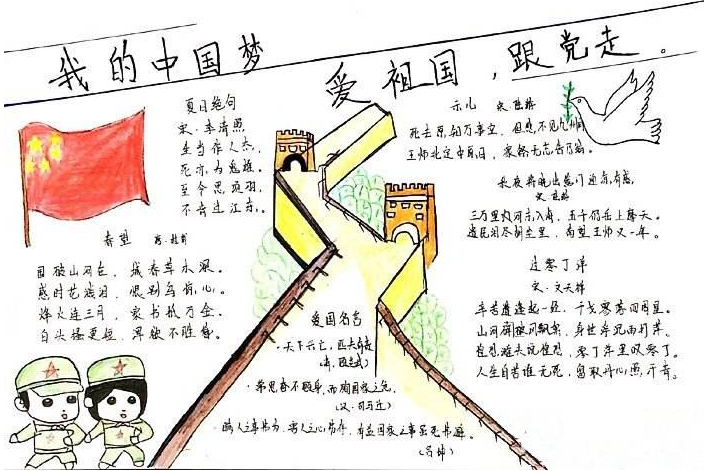 我的中国梦 爱祖国，跟党走。
夏日绝句
宋·李清照
生当作人杰，
死亦为鬼雄。
至今思项羽，
不肯过江东。
春望 唐·杜甫
国破山河在，城春草木深。
感时花溅泪，恨别鸟惊心。
烽火连三月，家书抵万金。
白头搔更短，浑欲不胜簪。
示儿 宋 陆游
死去原知万事空，但悲不见九州同
王师北定中原日，家祭无忘告乃翁。
秋夜将晓出篱门迎凉有感
宋 陆游
三万里河东入海，五千仞岳上摩天。
遗民泪尽胡尘里，南望王师又一年。
过零丁洋
宋·文天祥
辛苦遭逢起一经，干戈寥落四周星。
山河破碎风飘絮，身世浮沉雨打萍。
惶恐滩头说惶恐，零丁洋里叹零丁。
人生自古谁无死，留取丹心照汗青。
爱国名言
·天下兴亡，匹夫有责
(清，顾炎武)
·常思奋不顾身，而殉国家之急
(汉·司马迁)
·瞒人之事弗为，害人之心弗存，有益国家之事虽死弗避。
(吕坤)